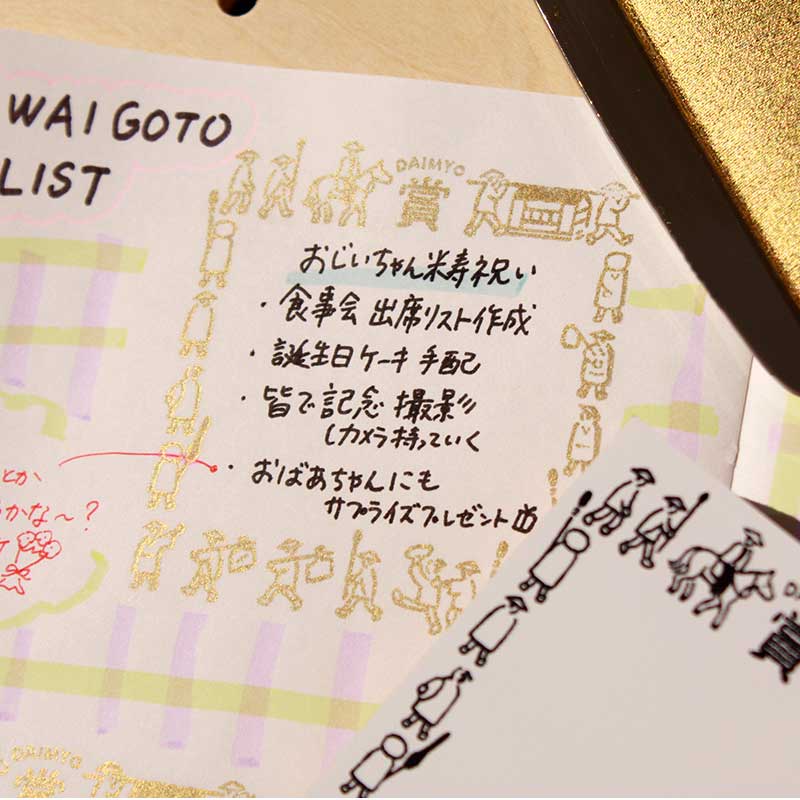 WAI GOTO
LIST
DAIMYO
賞
おじいちゃん米寿祝い
・食事会 出席リスト作成
・誕生日ケーキ手配
・皆で記念撮影
しカメラ持っていく
・おばあちゃんにも
サプライズプレゼント
とか
かな〜?
DAIMYO
DA
賞